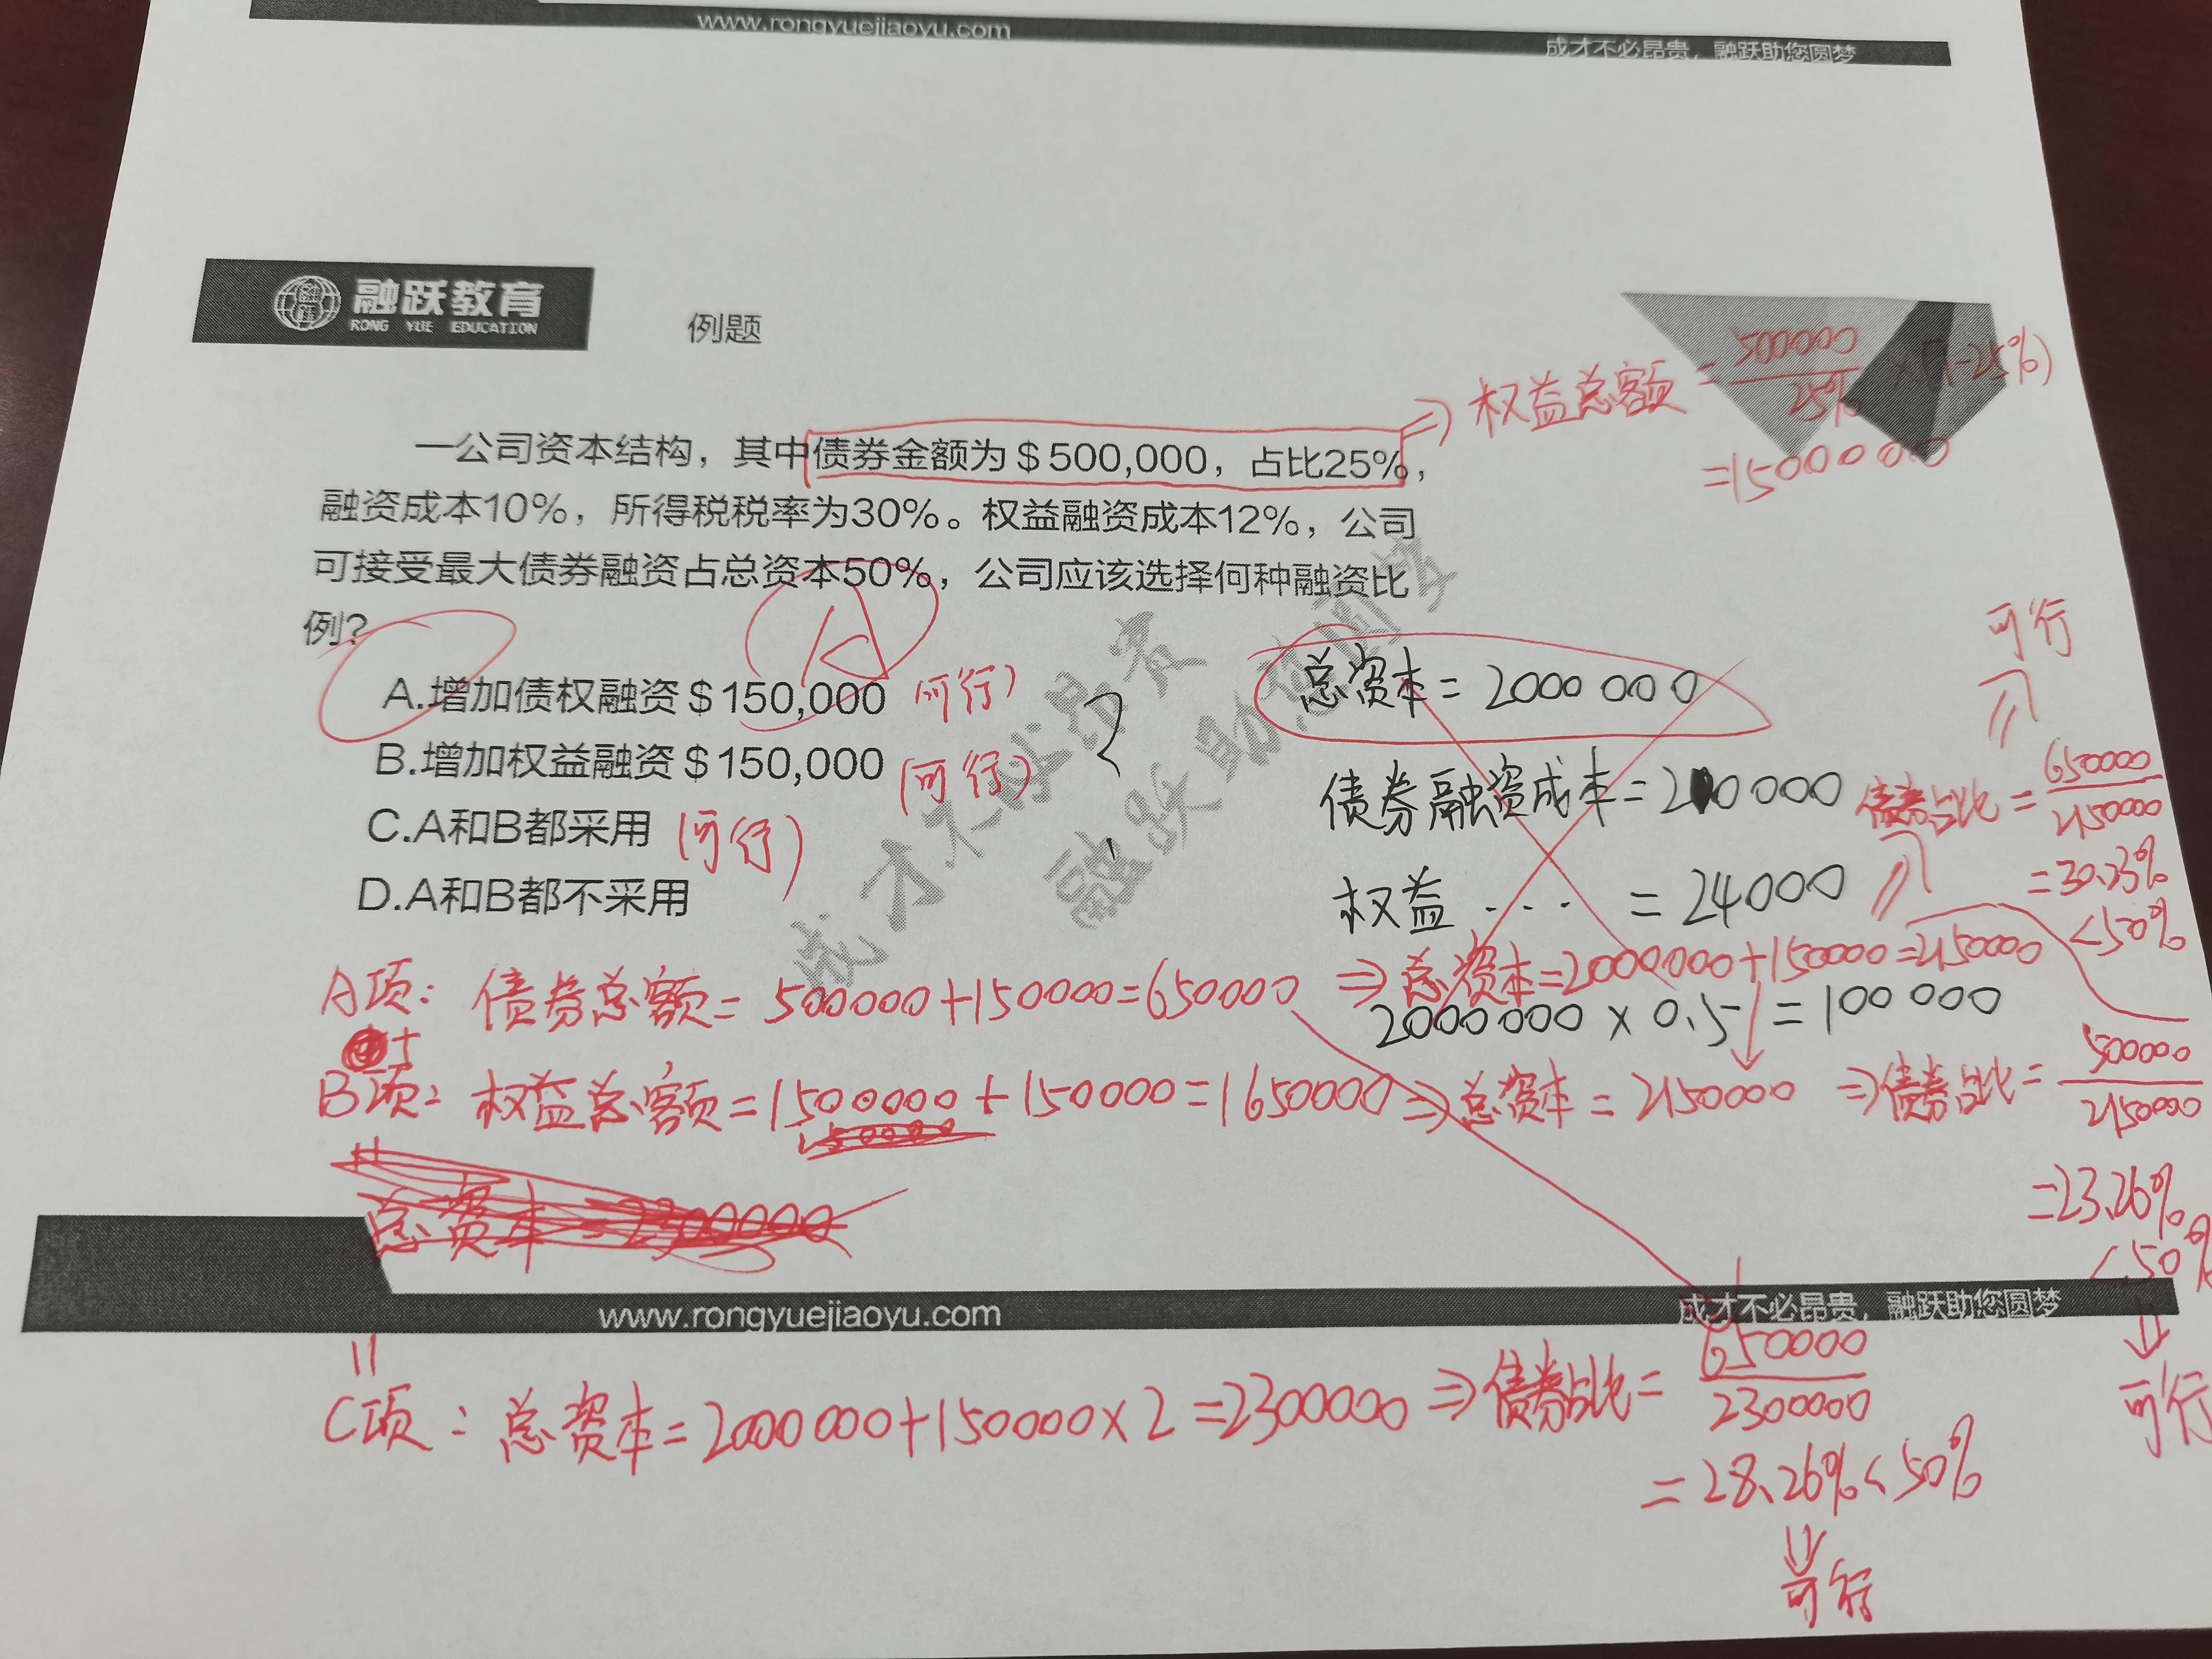 www.rongyuejiaoyu.com
成才不必昂贵，融跃助您圆梦
融跃教育
RONG YUE EDUCATION
例题
⇒ 权益总额 = 500000/25% × (1-25%)
=1500000
一公司资本结构，其中债券金额为$500,000，占比25%，
融资成本10%，所得税税率为30%。权益融资成本12%，公司
可接受最大债券融资占总资本50%，公司应该选择何种融资比
例？
A
A.增加债权融资$150,000 (可行)
B.增加权益融资$150,000 (可行)
C.A和B都采用 (可行)
D.A和B都不采用
成才不必昂贵
融跃助您圆梦
总资本 = 2000 000
债券融资成本 = 210 000
权益 ... = 24000
2000000 × 0.5 = 100 000
A项： 债券总额 = 500000+150000=650000 ⇒ 总资本=2000000+150000=2150000
⇒ 债券占比 = 650000/2150000
= 30.23%
<50%
⇒ 可行
B项： 权益总额 = 1500000 + 150000 = 1650000 ⇒ 总资本 = 2150000 ⇒ 债券占比 = 500000/2150000
=23.26%
<50%
⇓
可行
总资本 = 2300000
www.rongyuejiaoyu.com
成才不必昂贵，融跃助您圆梦
C项： 总资本 = 2000000+150000×2 =2300000 ⇒ 债券占比 = 650000/2300000
= 28.26% < 50%
⇓
可行